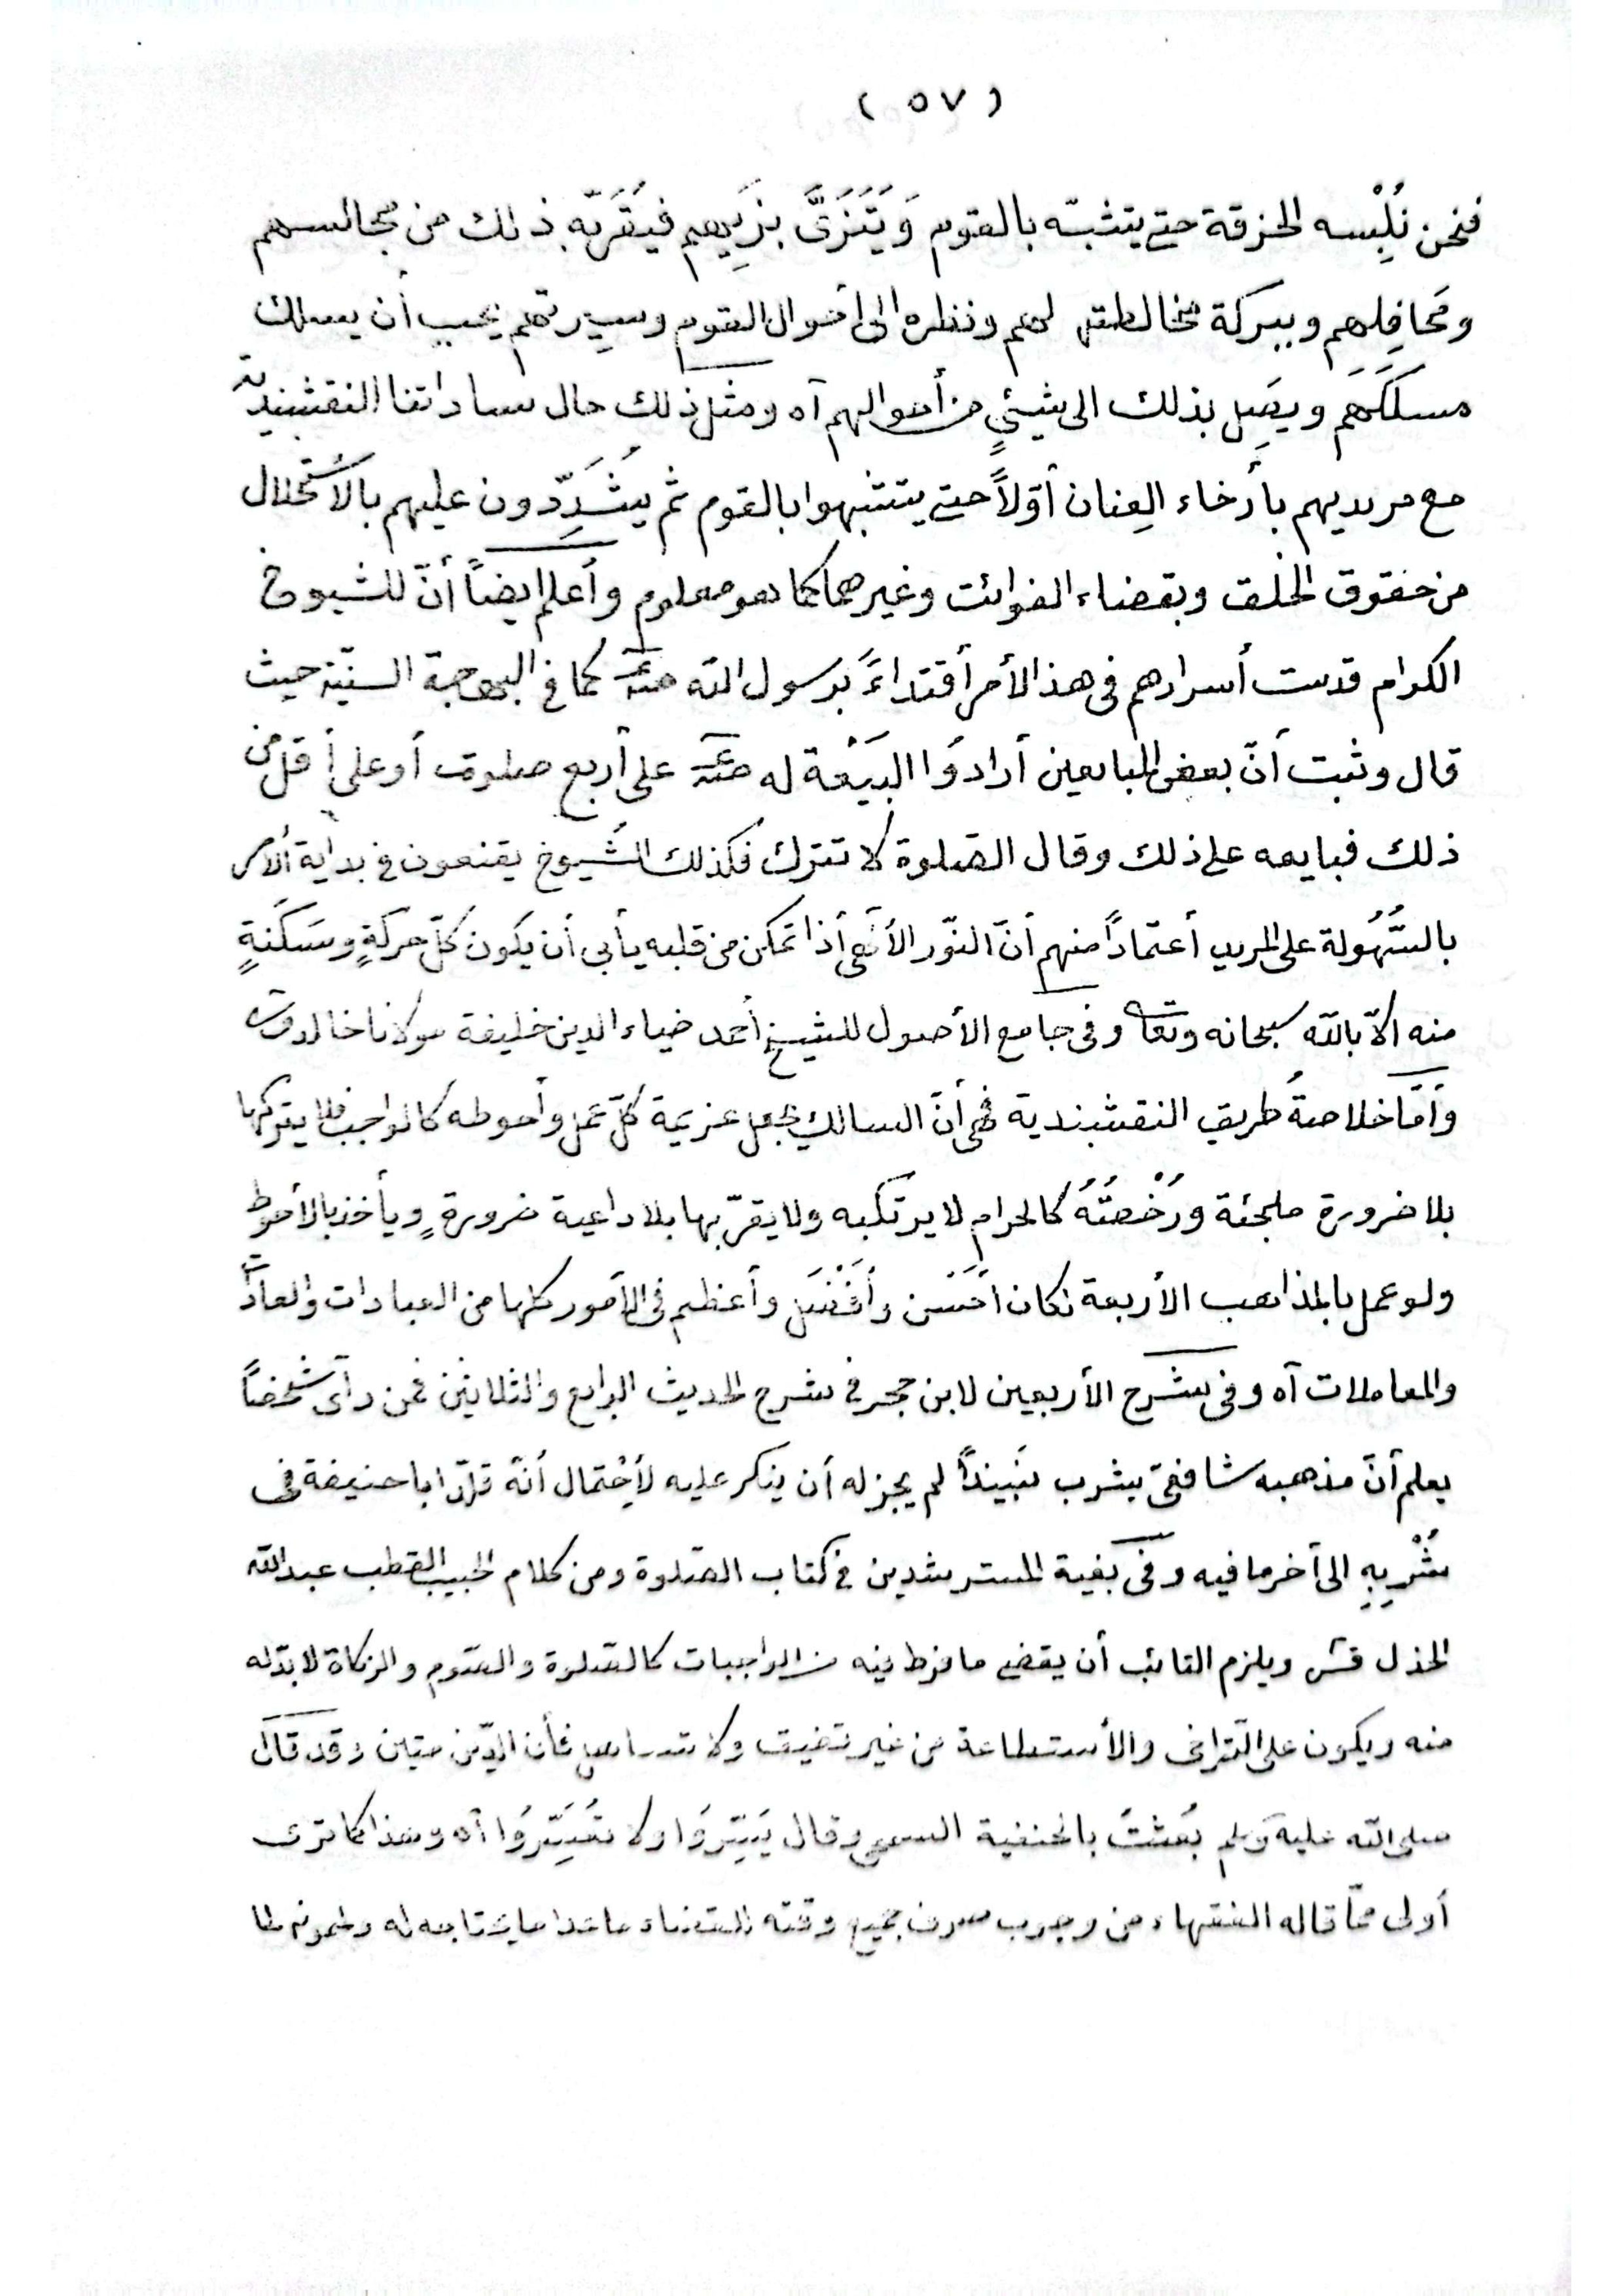 ( ٥٧ )
فنحن نُلْبِسه الخرقة حتى يتشبّه بالقوم وَيَتَزَيَّ بزَيِهم فيُقَرِبّه ذلك من مجالسهم
ومَحَافِلِهم وببركة مخالطته لهم ونظره الى أحوال القوم وسِيرتهم يحب أن يسلك
مسلكَهَم ويصَِل بذلك الى شيئٍ من أحوالهم آه ومثل ذلك حال ساداتنا النقشبندية
مع مريديهم بأرخاء العِنان أوّلاً حتى يتشبهوا بالقوم ثم يُشَدِّدون عليهم بالأستحلال
من حقوق الخلق وبقضاء الفوائت وغيرهما كما هو معلوم وأعلم ايضاً أنّ للشيوخ
الكرام قدست أسرارهم فى هذ الأمر أقتداءً برسول الله كما في البهجة السنّيّة حيث
قال وثبت أنّ بعض المبايعين أرادوُا البَيَعْة له على أربع صلوت أو على أقل من
ذلك فبايعه على ذلك وقال الصّلوة لا تترك فكذلك الشُيوخ يقنعون في بداية الأمر
بالسُّهُولة على المريد أعتماداً منهم أنّ النوّر الألٓهى أذا تمكن من قلبه يأبى أن يكون كلّ حركةٍ وسَكَنةٍ
منه الاّ بالله سبحانه وتعا وفى جامع الأصول للشيخ أحمد ضياء الدين خليفة مولانا خالد
وأمّا خلاصةُ طريق النقشبندية فهى أنّ السالك يجعل عزيمة كلّ عمل وأحوطه كالواجب فلا يتركها
بلا ضرورة ملجئة ورُخْصَتُهُ كالحرام لا يرتكبه ولا يقرّبها بلا داعية ضرورةٍ ويأخذ بالأحوط
ولو عمل بالمذاهب الأربعة لكان أحَسْن وأفَضْل وأعظم فى الأمور كلها من العبادات والعادات
والمعاملات آه وفى شرح الأربعين لابن حجر في شرح الحديث الرابع والثلاثين فمن رآى شخصاً
يعلم أنّ مذهبه شافعىّ يشرب نَبيذاً لم يجز له أن ينكر عليه لأِحْتمال أنّه قلّد ابا حنيفة فى
شُرْبِهِ الى آخر ما فيه وفى بُغية المسترشدين في كتاب الصّلوة ومن كلام الحبيب القطب عبدالله
الحداد ويلزم التائب أن يقضى ما فرط فيه من الواجبات كالصّلوة والصّوم والزكاة لابدّ له
منه ويكون على التّراخى والأستطاعة من غير تضيق ولا تساهل فأن الدّين متين وقد قال
صلى الله عليه وسلم بُعِثتُ بالحنفية السمحى وقال يَسِّرُوا ولا تُعَسِّرُوا آه وهذا كما ترى
أولى ممّا قاله الفقهاء من وجوب صرف جميع وقته للقضاء ما عدا ما يحتاجه له